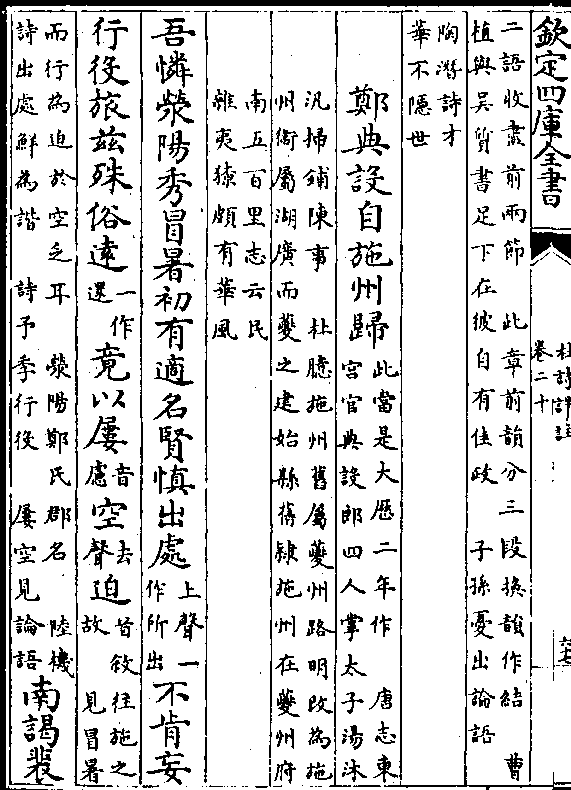 欽定四庫全書
杜詩詳註
卷二十
二語收盡前兩節　此章前韻分三段換韻作結　曹
植與吳質書足下在彼自有佳政　子孫憂出論語
陶潛詩才
華不隱世
鄭典設自施州歸
此當是大歷二年作　唐志東
宮官典設郎四人掌太子湯沐
汎掃鋪陳事　杜臆施州舊屬夔州路明改為施
州衛屬湖廣而夔之建始縣舊隸施州在夔州府
南五百里志云民
雜夷獠頗有華風
吾憐滎陽秀冒暑初有適名賢慎出處
上聲一
作所出
不肯妄
行役旅茲殊俗遠
一作
還
竟以屢
音
慮
空
去
聲
迫
皆敘往施之
故　見冒暑
而行為迫於空乏耳　滎陽鄭氏郡名　陸機
詩出處鮮為諧　詩予季行役　屢空見論語
南謁裴